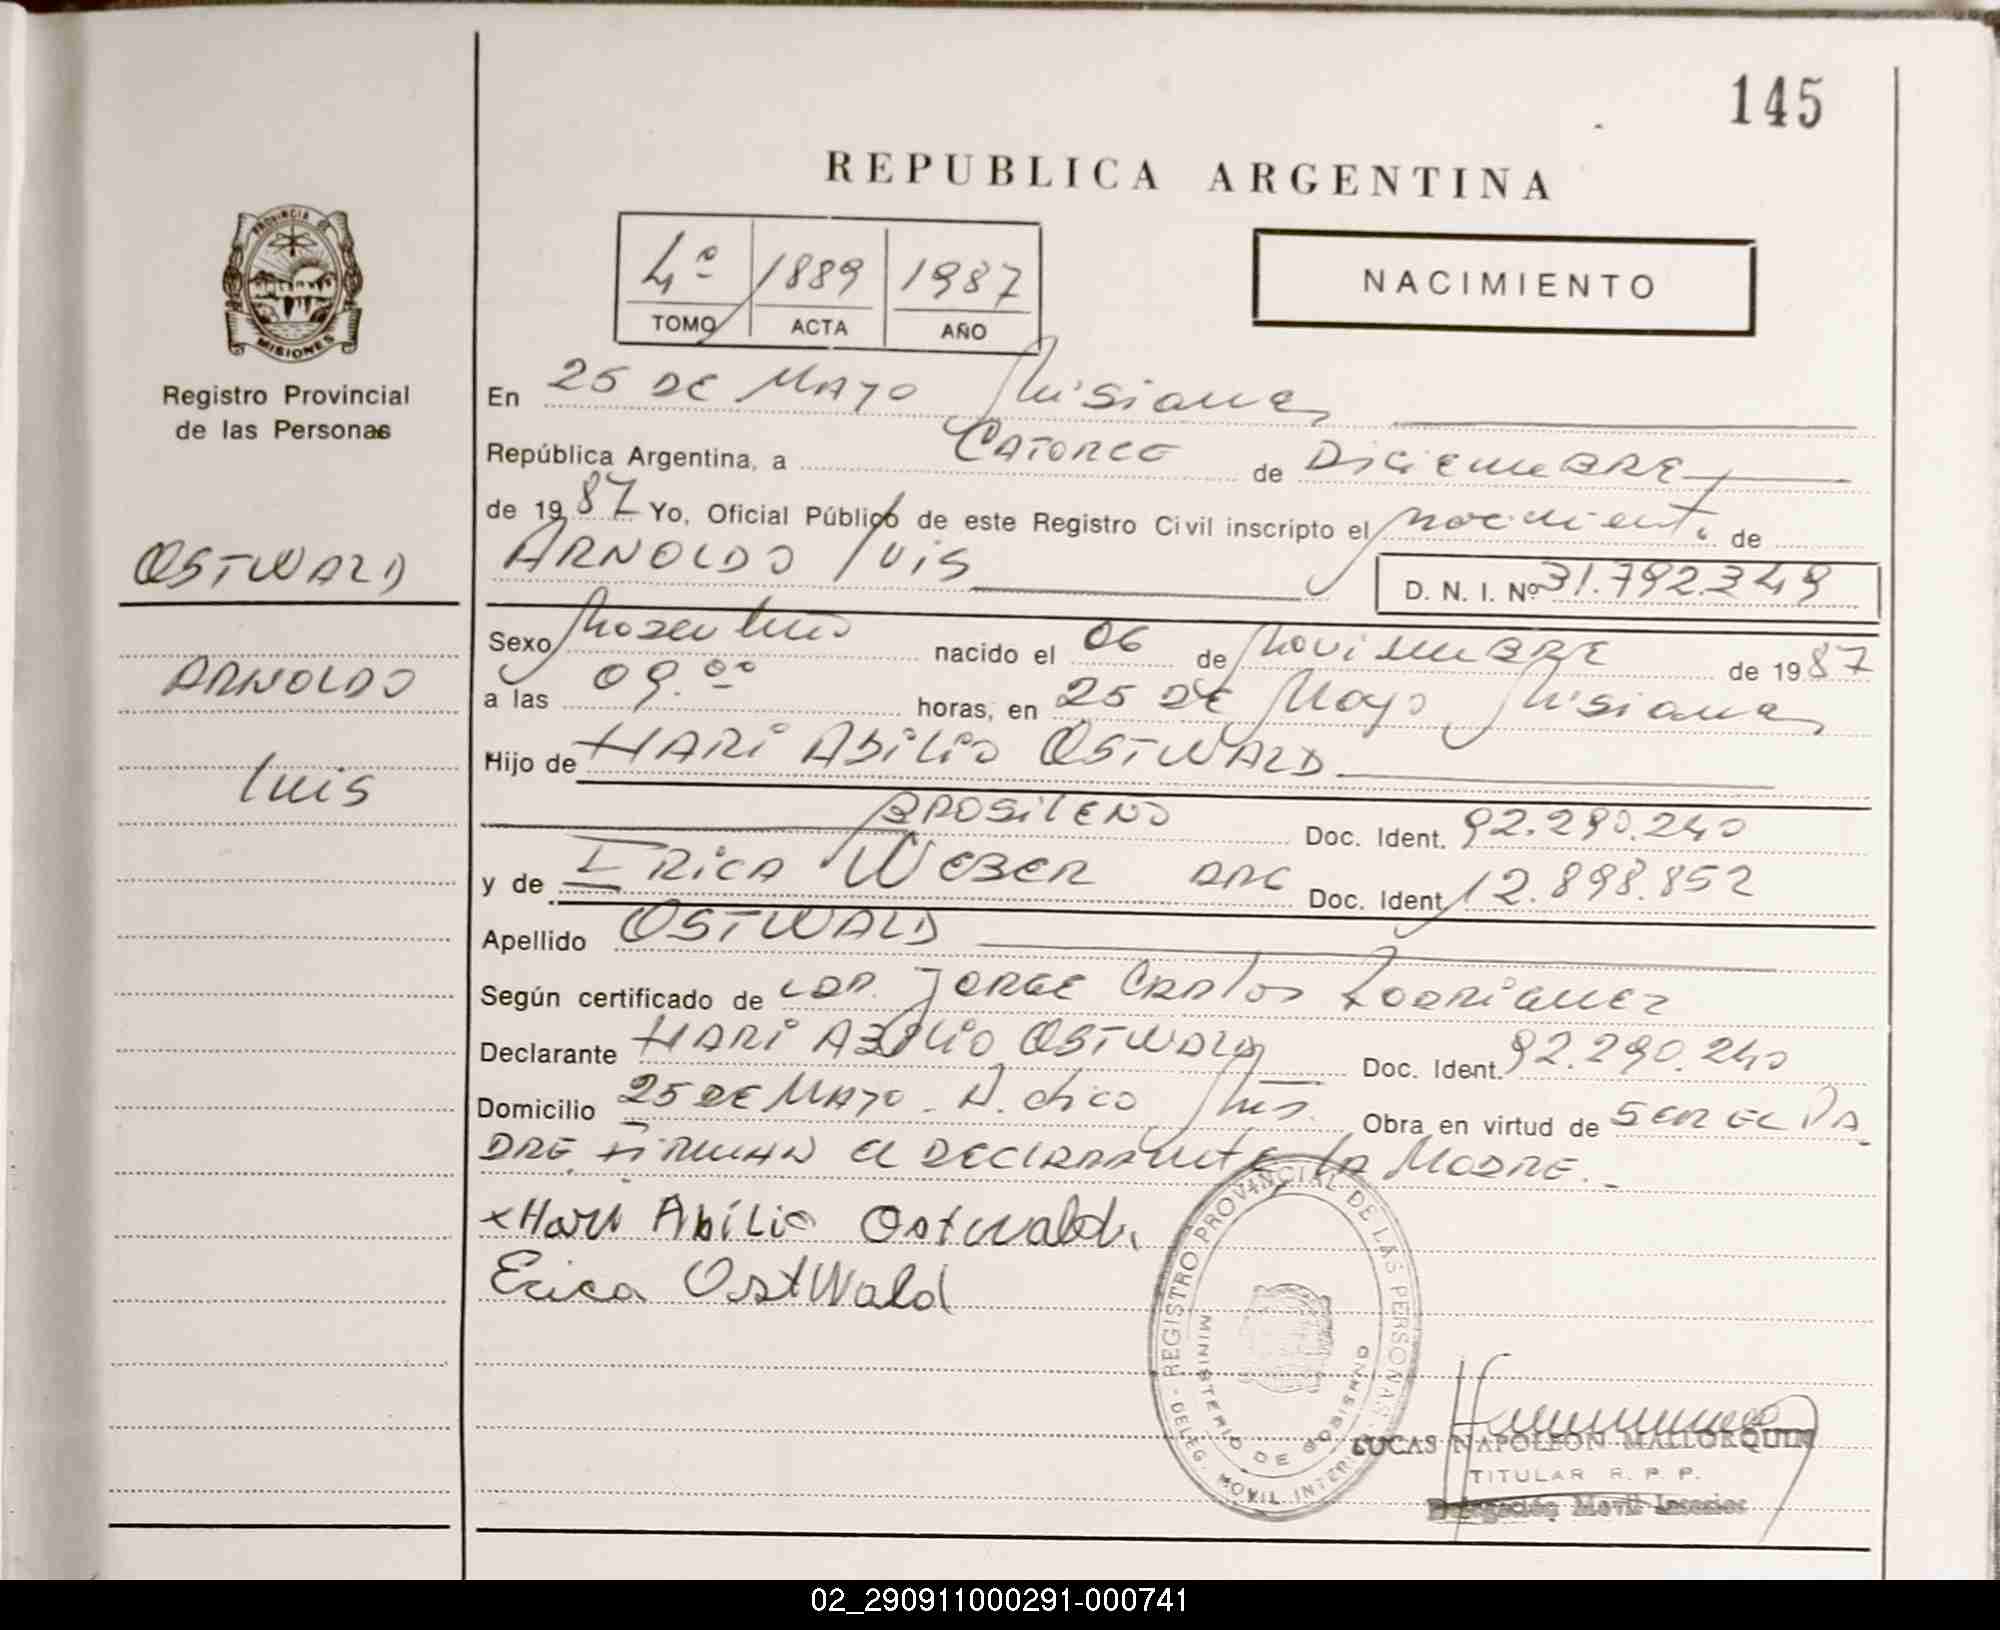 145
REPUBLICA ARGENTINA
4º 1889 1987
TOMO ACTA AÑO
NACIMIENTO
PROVINCIA DE
MISIONES
Registro Provincial
de las Personas
OSTWALD
ARNOLDO
Luis
En 25 DE MAYO Misiones
República Argentina, a CATORCE de DICIEMBRE
de 1987 Yo, Oficial Público de este Registro Civil inscripto el nacimiento de
ARNOLDO Luis D. N. I. Nº 31.792.349
Sexo Masculino nacido el 06 de NoviEMBRE de 1987
a las 09.00 horas, en 25 DE Mayo Misiones
Hijo de HARi ABiLiO OSTWALD
BRASiLEÑO Doc. Ident. 92.290.240
y de ERiCA WEBER ARG Doc. Ident. 12.898.852
Apellido OSTWALD
Según certificado de JORGE CARLOS RODRiGUEZ
Declarante HARi ABiLiO OSTWALD Doc. Ident. 92.290.240
Domicilio 25 DE MAYO - A. chico Mis. Obra en virtud de SER EL PA
DRE FiRMAN EL DECLARANTE LA MADRE.-
x Hari Abílio Ostwald.
Erica OstWald
REGISTRO PROVINCIAL DE LAS PERSONAS - DELEG. MOVIL INTERIOR
MINISTERIO DE GOBIERNO
LUCAS NAPOLEON MALLORQUIN
TITULAR R. P. P.
Delegación Movil Interior
02_290911000291-000741